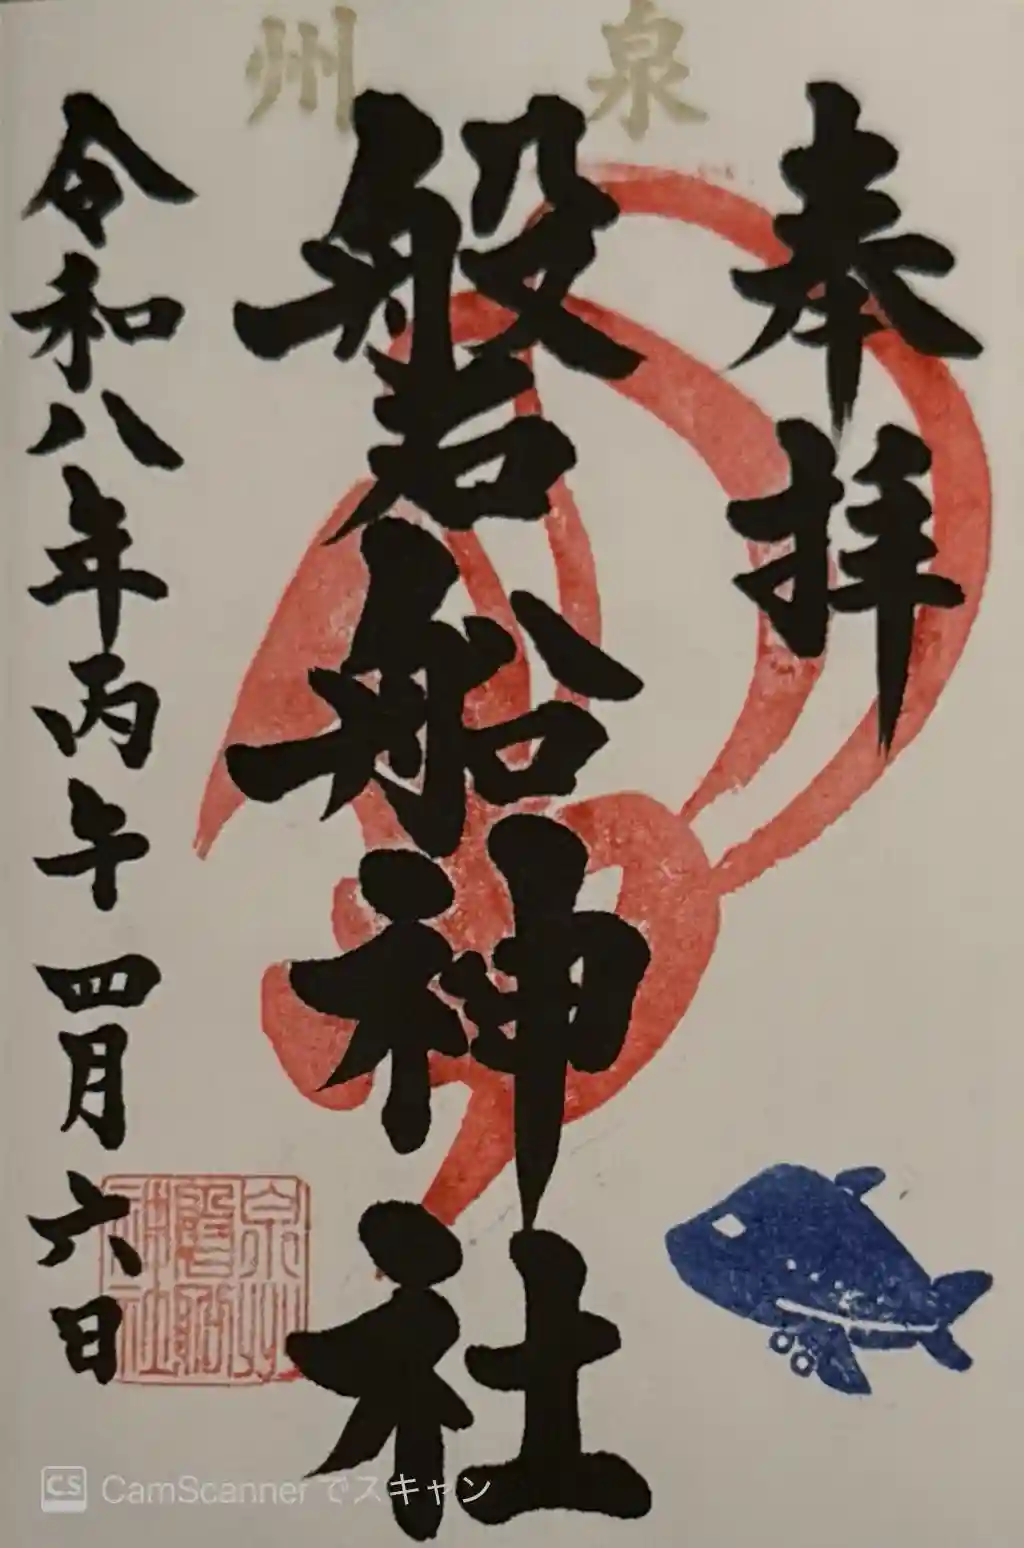 泉州
奉拝
磐船神社
令和八年丙午四月六日
泉州
磐船
神社
CS CamScannerでスキャン